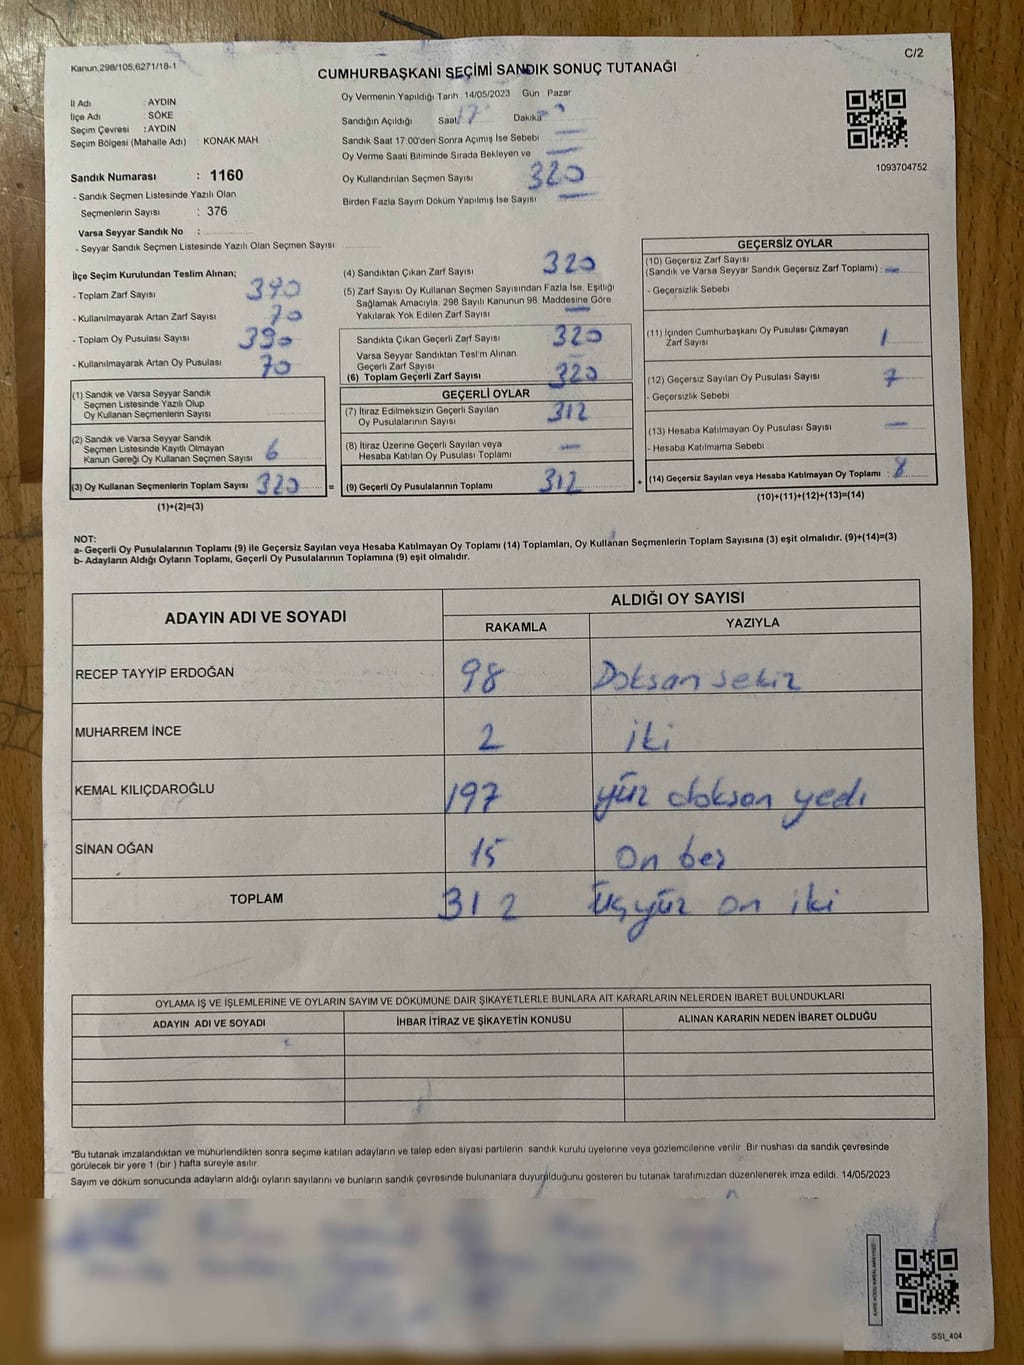 Kanun,298/105,6271/18-1
C/2
CUMHURBAŞKANI SEÇİMİ SANDIK SONUÇ TUTANAĞI
İl Adı : AYDIN
İlçe Adı : SÖKE
Seçim Çevresi : AYDIN
Seçim Bölgesi (Mahalle Adı) : KONAK MAH
Sandık Numarası : 1160
- Sandık Seçmen Listesinde Yazılı Olan
Seçmenlerin Sayısı : 376
Varsa Seyyar Sandık No :
- Seyyar Sandık Seçmen Listesinde Yazılı Olan Seçmen Sayısı:
Oy Vermenin Yapıldığı Tarih :14/05/2023 Gün : Pazar
Sandığın Açıldığı Saat: 17 Dakika:
Sandık Saat 17:00'den Sonra Açımış İse Sebebi
Oy Verme Saati Bitiminde Sırada Bekleyen ve
Oy Kullandırılan Seçmen Sayısı 320
Birden Fazla Sayım Döküm Yapılmış İse Sayısı
1093704752
İlçe Seçim Kurulundan Teslim Alınan;
- Toplam Zarf Sayısı 390
- Kullanılmayarak Artan Zarf Sayısı 70
- Toplam Oy Pusulası Sayısı 390
- Kullanılmayarak Artan Oy Pusulası 70
(1) Sandık ve Varsa Seyyar Sandık
Seçmen Listesinde Yazılı Olup
Oy Kullanan Seçmenlerin Sayısı
(2) Sandık ve Varsa Seyyar Sandık
Seçmen Listesinde Kayıtlı Olmayan
Kanun Gereği Oy Kullanan Seçmen Sayısı 6
(3) Oy Kullanan Seçmenlerin Toplam Sayısı 320 =
(1)+(2)=(3)
(4) Sandıktan Çıkan Zarf Sayısı 320
(5) Zarf Sayısı Oy Kullanan Seçmen Sayısından Fazla İse, Eşitliği
Sağlamak Amacıyla, 298 Sayılı Kanunun 98. Maddesine Göre
Yakılarak Yok Edilen Zarf Sayısı
Sandıkta Çıkan Geçerli Zarf Sayısı 320
Varsa Seyyar Sandıktan Teslim Alınan
Geçerli Zarf Sayısı
(6) Toplam Geçerli Zarf Sayısı 320
GEÇERLİ OYLAR
(7) İtiraz Edilmeksizin Geçerli Sayılan
Oy Pusulalarının Sayısı 312
(8) İtiraz Üzerine Geçerli Sayılan veya
Hesaba Katılan Oy Pusulası Toplamı
(9) Geçerli Oy Pusulalarının Toplamı 312 +
GEÇERSİZ OYLAR
(10) Geçersiz Zarf Sayısı
(Sandık ve Varsa Seyyar Sandık Geçersiz Zarf Toplamı) :
- Geçersizlik Sebebi
(11) İçinden Cumhurbaşkanı Oy Pusulası Çıkmayan
Zarf Sayısı 1
(12) Geçersiz Sayılan Oy Pusulası Sayısı 7
- Geçersizlik Sebebi
(13) Hesaba Katılmayan Oy Pusulası Sayısı
- Hesaba Katılmama Sebebi
(14) Geçersiz Sayılan veya Hesaba Katılmayan Oy Toplamı : 8
(10)+(11)+(12)+(13)=(14)
NOT:
a- Geçerli Oy Pusulalarının Toplamı (9) ile Geçersiz Sayılan veya Hesaba Katılmayan Oy Toplamı (14) Toplamları, Oy Kullanan Seçmenlerin Toplam Sayısına (3) eşit olmalıdır. (9)+(14)=(3)
b- Adayların Aldığı Oyların Toplamı, Geçerli Oy Pusulalarının Toplamına (9) eşit olmalıdır.
ADAYIN ADI VE SOYADI
ALDIĞI OY SAYISI
RAKAMLA YAZIYLA
RECEP TAYYİP ERDOĞAN 98 Doksan sekiz
MUHARREM İNCE 2 iki
KEMAL KILIÇDAROĞLU 197 yüz doksan yedi
SİNAN OĞAN 15 On beş
TOPLAM 312 üçyüz on iki
OYLAMA İŞ VE İŞLEMLERİNE VE OYLARIN SAYIM VE DÖKÜMÜNE DAİR ŞİKAYETLERLE BUNLARA AİT KARARLARIN NELERDEN İBARET BULUNDUKLARI
ADAYIN ADI VE SOYADI İHBAR İTİRAZ VE ŞİKAYETİN KONUSU ALINAN KARARIN NEDEN İBARET OLDUĞU
*Bu tutanak imzalandıktan ve mühürlendikten sonra seçime katılan adayların ve talep eden siyasi partilerin sandık kurulu üyelerine veya gözlemcilerine verilir. Bir nushası da sandık çevresinde
görülecek bir yere 1 (bir ) hafta süreyle asılır.
Sayım ve döküm sonucunda adayların aldığı oyların sayılarını ve bunların sandık çevresinde bulunanlara duyurulduğunu gösteren bu tutanak tarafımızdan düzenlenerek imza edildi. 14/05/2023
SSI_404